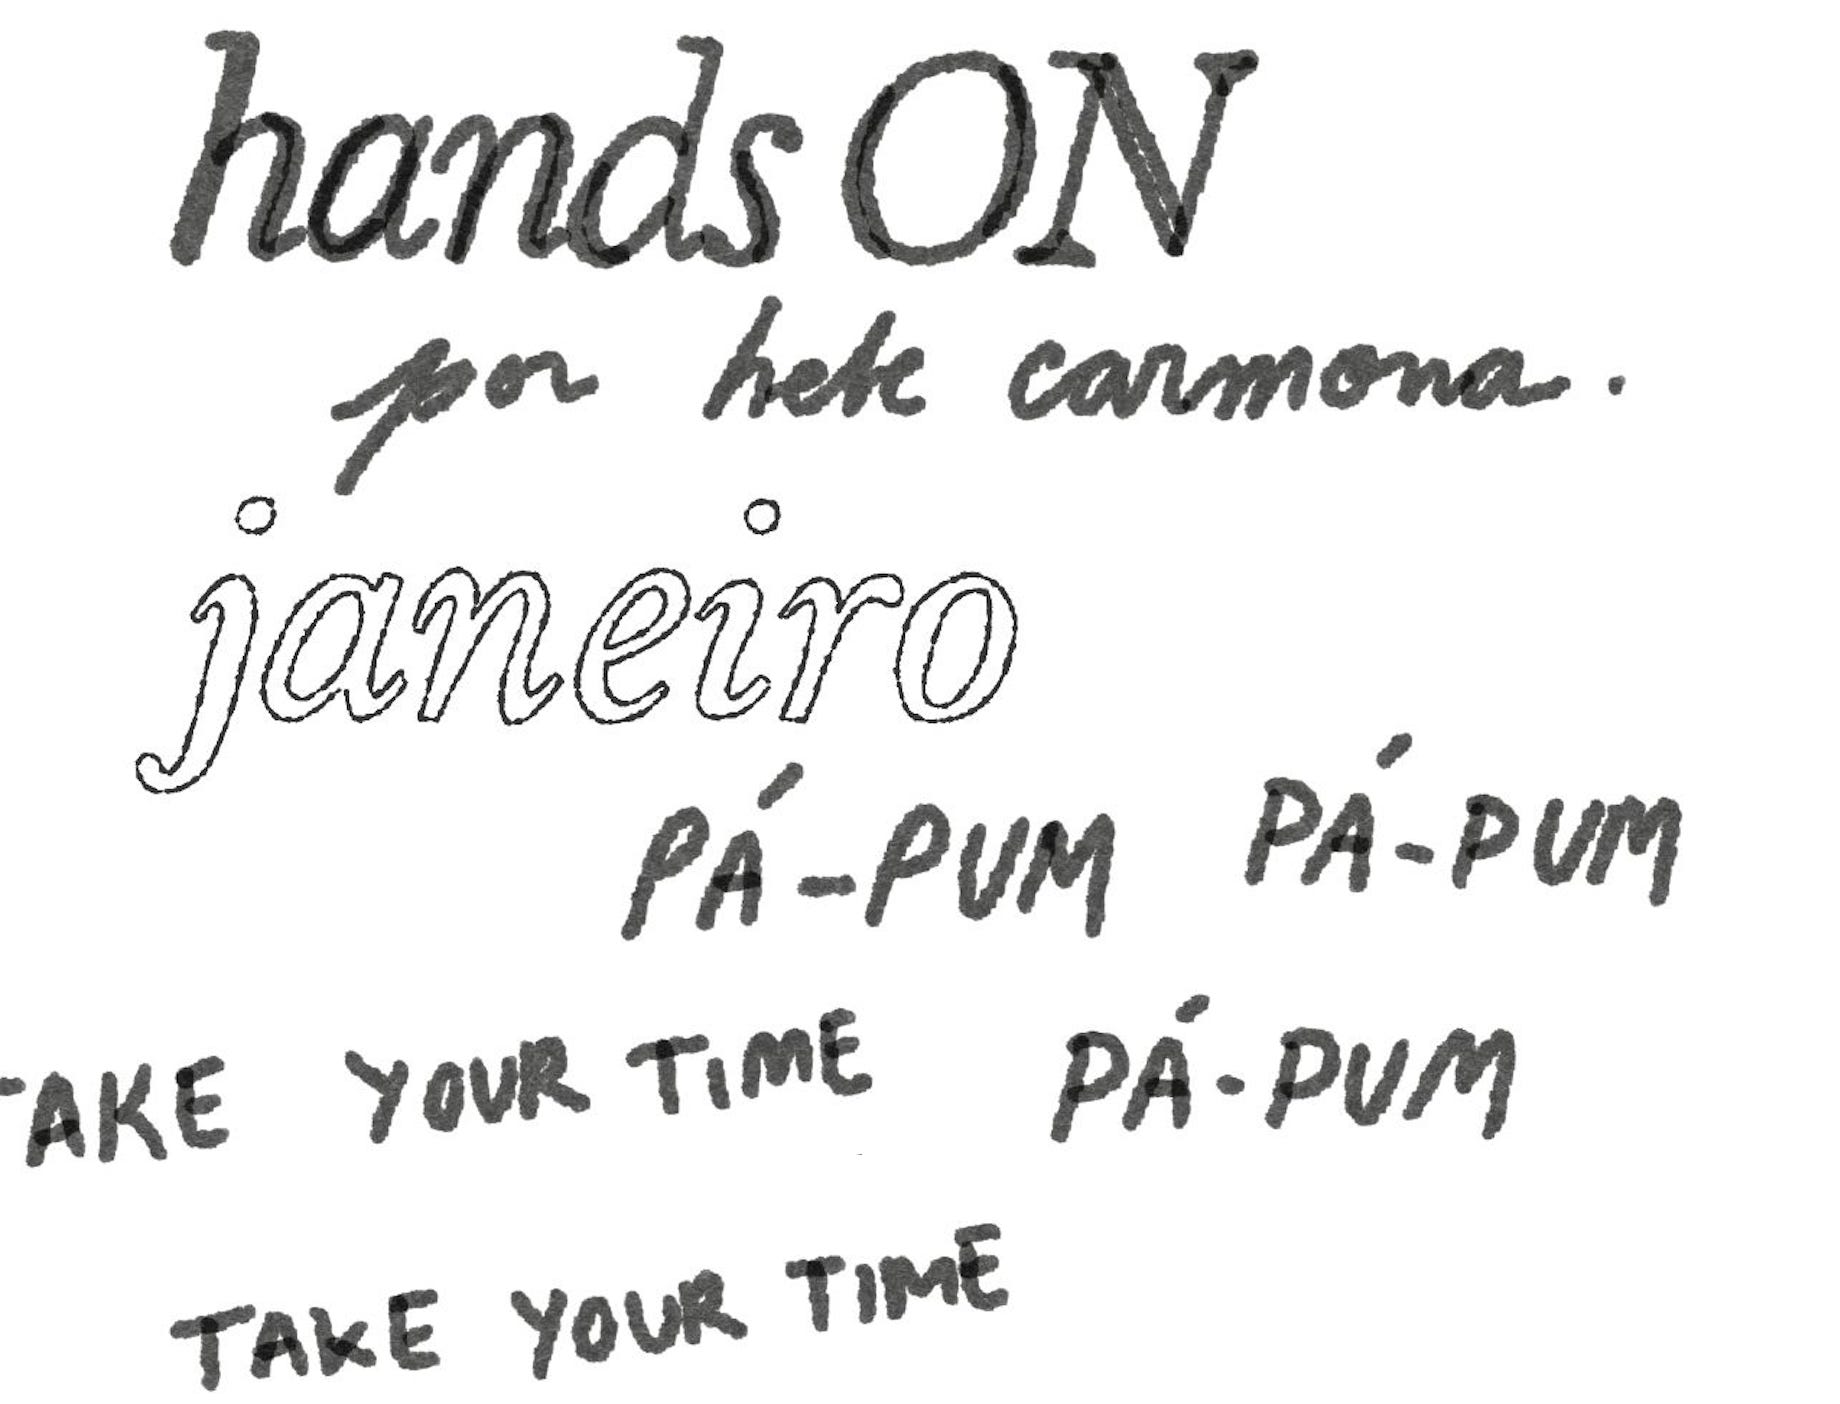 hands ON
por hete carmona.
janeiro
PÁ-PUM PÁ-PUM
TAKE YOUR TIME PÁ-PUM
TAKE YOUR TIME